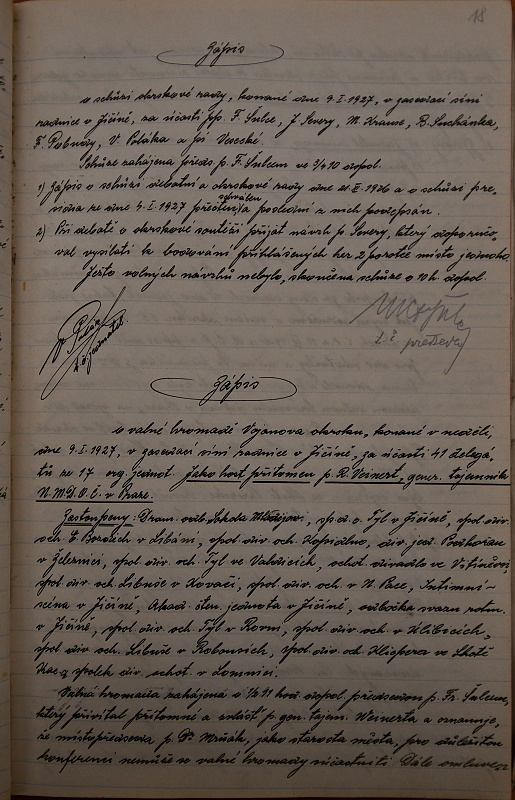 18
Zápis
o schůzi okrskové rady, konané dne 9.I.1927, v zasedací síni
radnice v Jičíně, za účasti pp. F. Šulce, J. Severy, M. Krause, B. Suchánka,
F. V. Poláka a
Schůze zahájena předs. p. F. Šulcem ve 3/4 10 dopol.
schválen
1) Zápis o schůzi debatní a okrskové rady dne XII.1926 a o schůzi pre-
sidia ze dne 4.I.1927 přečten a poslední z nich podepsán.
2) Při debatě o okrskové soutěži přijat návrh p. Severy, který doporučo-
val vysílati k bodování přihlášených her 2 porotce místo jednoho.
Ježto volných návrhů nebylo, skončena schůze o 10 h. dopol.
t. č. jednatel.
t. č. předseda
Zápis
o valné hromadě Vojanova okrsku, konané v neděli,
dne 9.I.1927, v zasedací síni radnice v Jičíně, za účasti 41 delegá-
tů ze 17 org. jednot. Jako host přítomen p. R. Weinert, gener. tajemník
Ú.M.D.O.Č. v Praze.
Zastoupeny: Dram. odb. Sokola Mladějov, sp. d. o. Tyl v Jičíně, spol. div.
och. v Libáni, spol. div. och. Kopidlno, div. jed. Pošt
v Železnici, spol. div. och. Tyl ve Valdicích, ochot. divadlo ve
spol. div. och. Libuše v Kovači, spol. div. och. v N. Pace, Intimní
scéna v Jičíně, Akad. čten. jednota v Jičíně, odbočka svazu rotm.
v Jičíně, spol. div. och. Tyl v Rovni, spol. div. och. v Hlibicích,
spol. div. och. Libuše v Robousích, spol. div. och. Klicpera ve Lhotě
a spolek div. ochot. v Lomnici.
Valná hromada zahájena o 1/2 11 hod. dopol. předsedou p. Fr. Šulcem,
který přivítal přítomné a zvlášť p. gen. tajem. Weinerta a oznamuje,
že místopředseda p. Dr. Mršák, jako starosta města, pro důležitou
konferenci nemůže se valné hromady súčastniti. Dále omluven